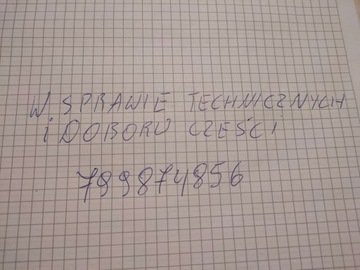 W SPRAWIE TECHNICZNYCH
I DOBORU CZEŚCI
799874856